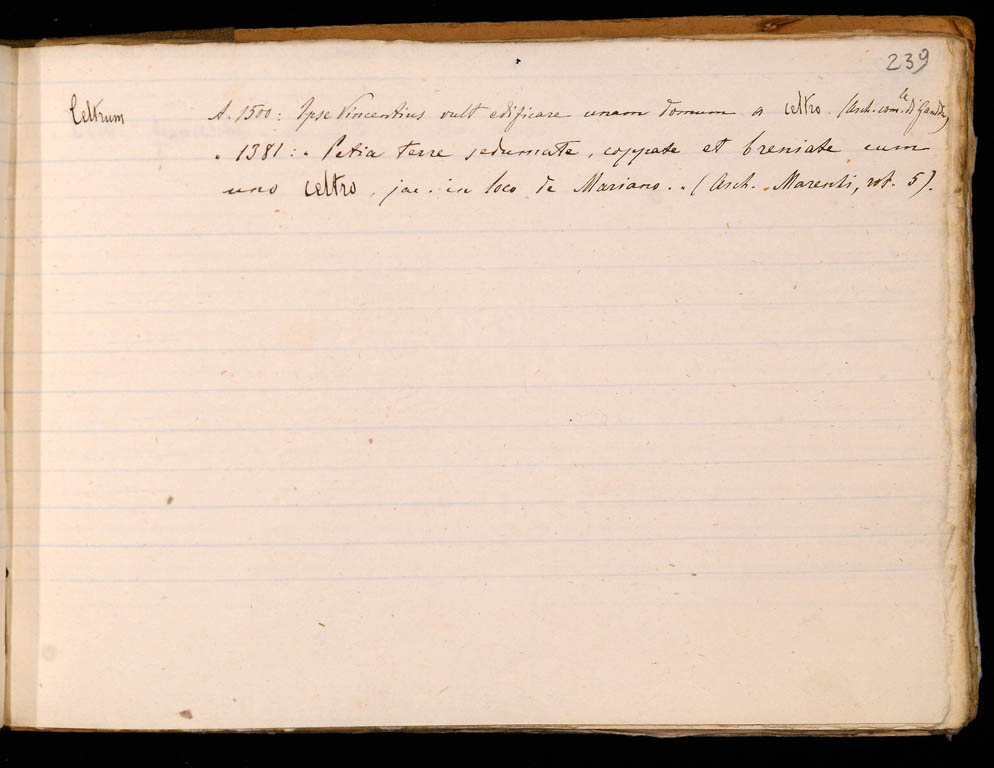 239
Celtrum A. 1500: Ipse Vincentius vult edificare unam domum a celtro. (Arch. com.le di Gand.)
" 1381: " Petia terre sedumate, coppate et breniate cum
uno celtro, jac. in loco de Mariano. " (Arch. Marenti, rot. 5).